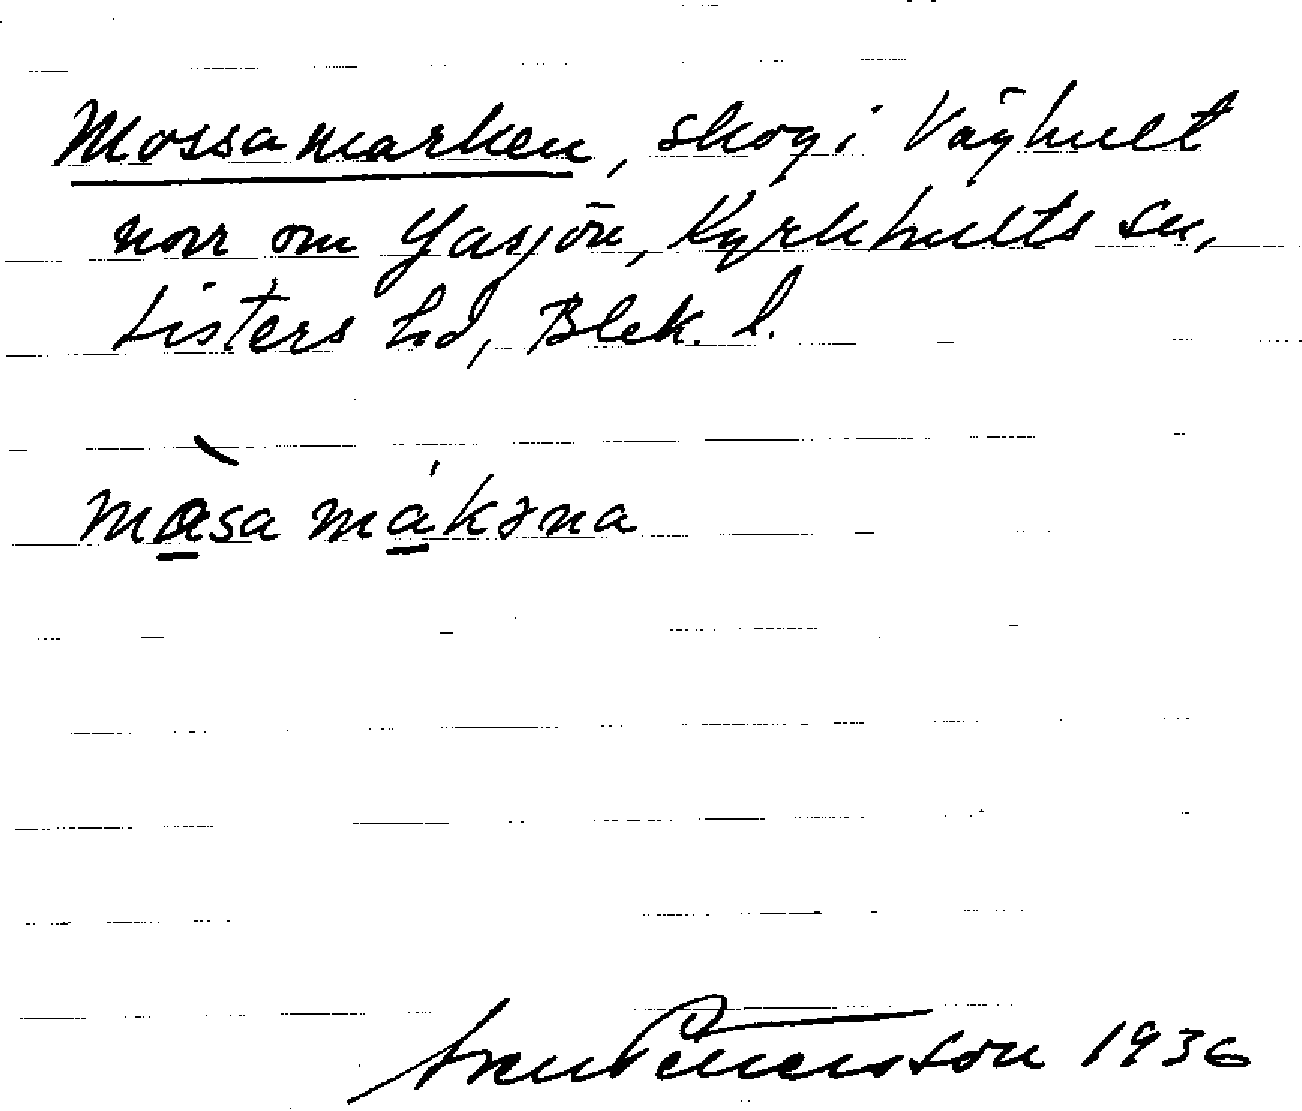 Mossamarken, skog i Väghult
norr om Gasjön, Kyrkhults sn,
Listers hd, Blek. l.
màsa mákəna
Sven Benson 1936